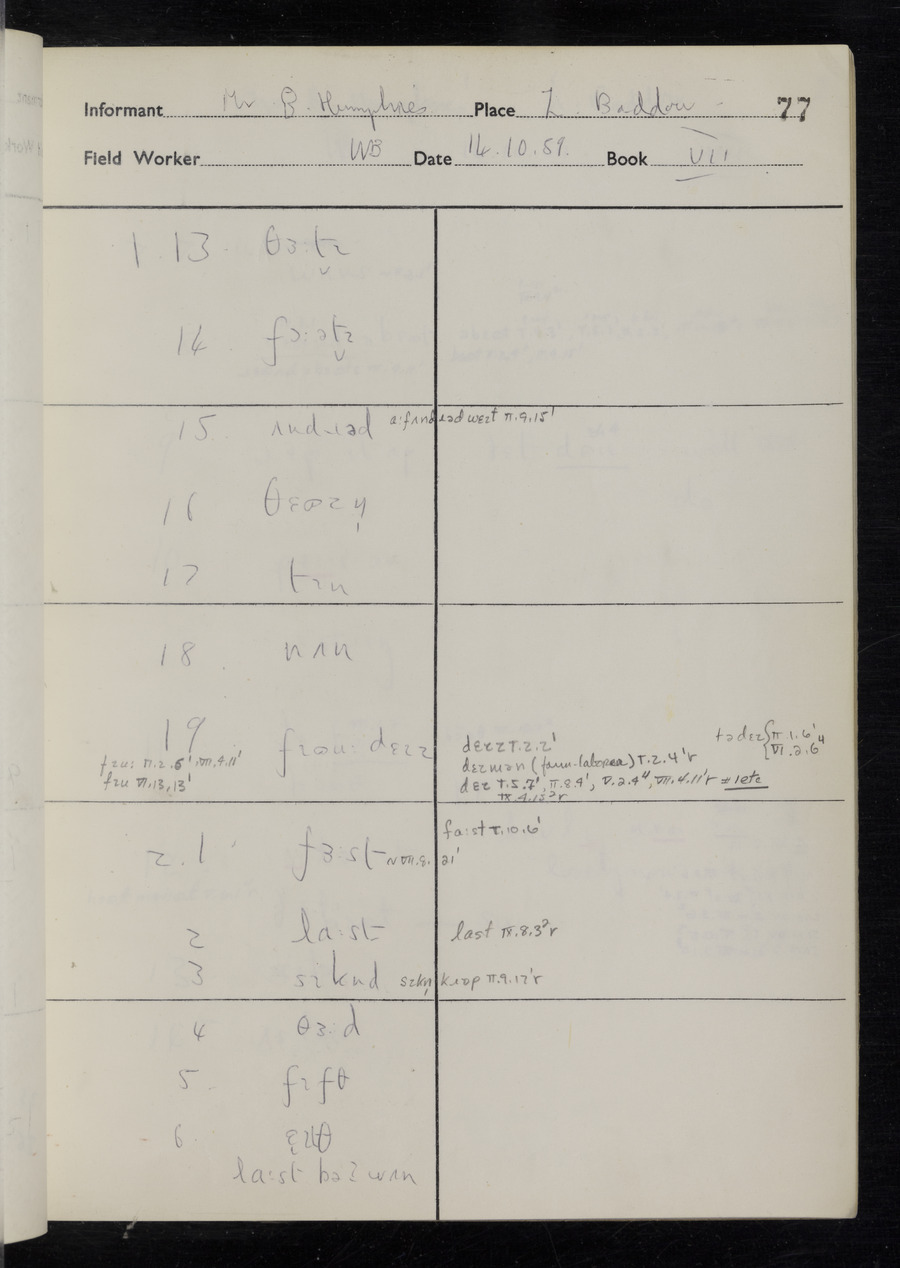 Informant Mr B. Humphries Place L. Baddow 77
Field Worker WB Date 14.10.59. Book VII
1.13 θɜ:tɪ
14 fɔ:ətɪ
15 ʌndɹəd a:fʌndɹəd wɛɪt II.9.15'
16
17 tɪu
18 nʌn
19 fɹau: dɛɪz
fɹu: VIII.4.11'
fɹu VI.13,13'
dɛɪz I.2.2'
dɛɪmən (farm-laborer) I.2.4'r
dɛɪ I.5.7', II.8.9', V.2.4⁴, VII.4.11'r ≠1etc
IX.4.15²r
tədɛɪ { II.1.6' 4
VI.2.6
2.1 fɜ:st ~VII.8.21'
fa:st I.10.6'
2 la:st last IX.8.3²r
3 sɪknd sɛkn̩ kɹɒp II.9.12'r
4 θɜ:d
5 fɪfθ
6
la:st bəʔ wʌn